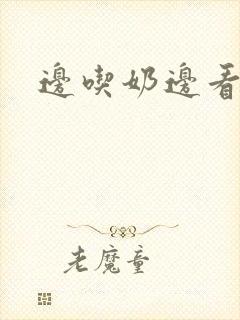 邊喫奶邊看
老魔童